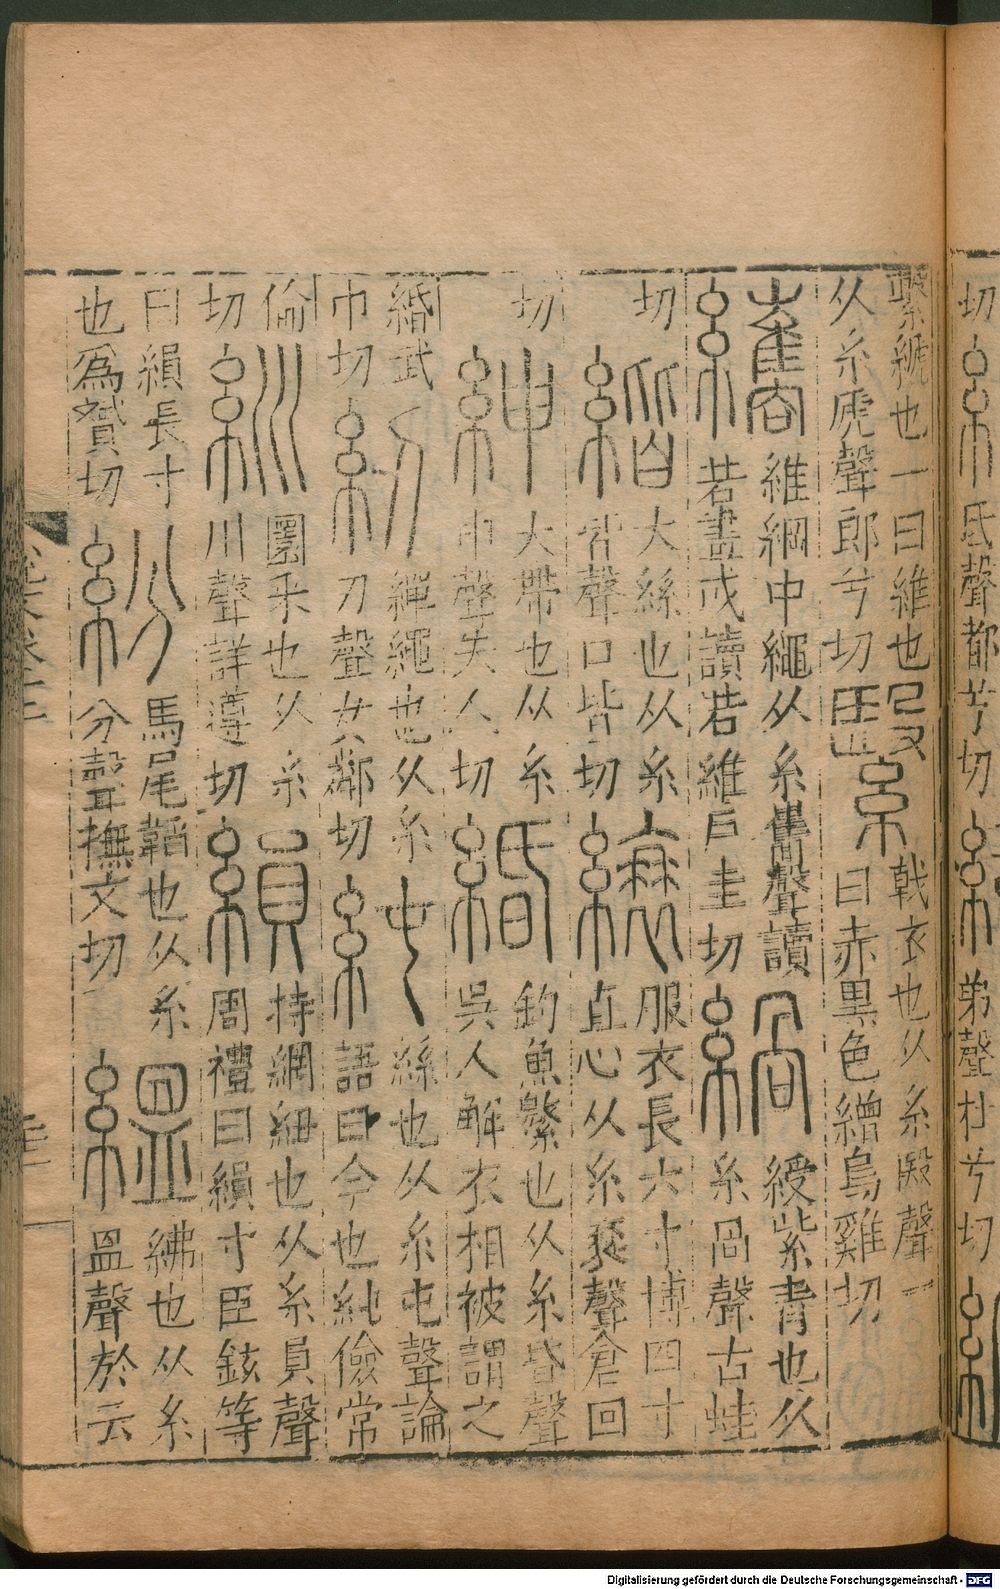 切
紙
氐聲都兮切
綈
弟聲杜兮切
繫䋹也一曰維也
从糸虒聲郎兮切
繄
戟衣也从糸殹聲一
曰赤黑色繒烏雞切
纗
維綱中繩从糸巂聲讀
若畫或讀若維户圭切
緺
綬紫青也从
糸咼聲古蛙
切
大絲也从糸
皆聲口皆切
縗
服衣長六寸博四寸
直心从糸衰聲倉回
切
紳
大帶也从糸
申聲失人切
緍
釣魚繁也从糸昏聲
吳人解衣相被謂之
緍武
巾切
紉
繟繩也从糸
刃聲女鄰切
純
絲也从糸屯聲論
語曰今也純儉常
倫
切
紃
圜采也从糸
川聲詳遵切
縜
持綱紐也从糸員聲
周禮曰縜寸臣鉉等
曰縜長寸
也爲贇切
紛
馬尾韜也从糸
分聲撫文切
緼
紼也从糸
昷聲於云
Digitalisierung gefördert durch die Deutsche Forschungsgemeinschaft - DFG